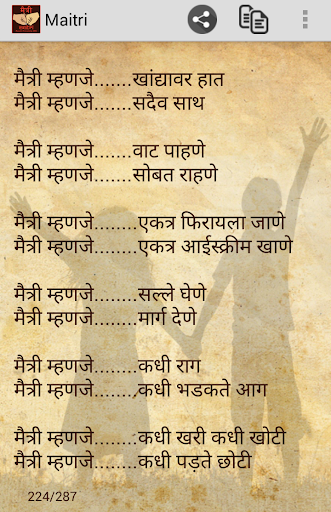 Maitri
मैत्री म्हणजे.......खांद्यावर हात
मैत्री म्हणजे.......सदैव साथ
मैत्री म्हणजे.......वाट पाहणे
मैत्री म्हणजे.......सोबत राहणे
मैत्री म्हणजे........एकत्र फिरायला जाणे
मैत्री म्हणजे........एकत्र आईस्क्रीम खाणे
मैत्री म्हणजे........सल्ले घेणे
मैत्री म्हणजे........मार्ग देणे
मैत्री म्हणजे........कधी राग
मैत्री म्हणजे........कधी भडकते आग
मैत्री म्हणजे........कधी खरी कधी खोटी
मैत्री म्हणजे........कधी पड़ते छोटी
224/287